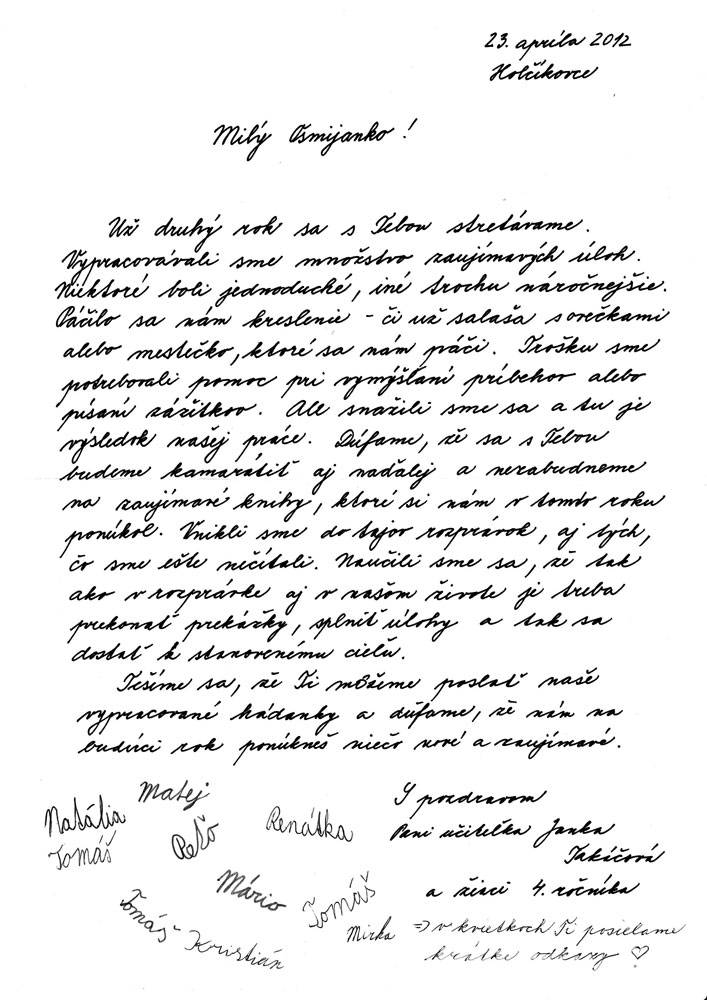 23. apríla 2012
Holčíkovce
Milý Osmijanko!
Už druhý rok sa s Tebou stretávame.
Vypracovávali sme množstvo zaujímavých úloh.
Niektoré boli jednoduché, iné trochu náročnejšie.
Páčilo sa nám kreslenie - či už salaša s ovečkami
alebo mestečko, ktoré sa nám páči. Trošku sme
potrebovali pomoc pri vymýšľaní príbehov alebo
písaní zážitkov. Ale snažili sme sa a tu je
výsledok našej práce. Dúfame, že sa s Tebou
budeme kamarátiť aj naďalej a nezabudneme
na zaujímavé knihy, ktoré si nám v tomto roku
ponúkol. Vnikli sme do tajov rozprávok, aj tých,
čo sme ešte nečítali. Naučili sme sa, že tak
ako v rozprávke aj v našom živote je treba
prekonať prekážky, splniť úlohy a tak sa
dostať k stanovenému cieľu.
Tešíme sa, že Ti môžeme poslať naše
vypracované hádanky a dúfame, že nám na
budúci rok ponúkneš niečo nové a zaujímavé.
S pozdravom
Pani učiteľka Janka
Takáčová
a žiaci 4. ročníka
Matej
Natália
Tomáš
Peťo
Renátka
Mário
Tomáš
Tomáš
Kristián
Mirka
=> v kvietkoch Ti posielame
krátke odkazy ♡